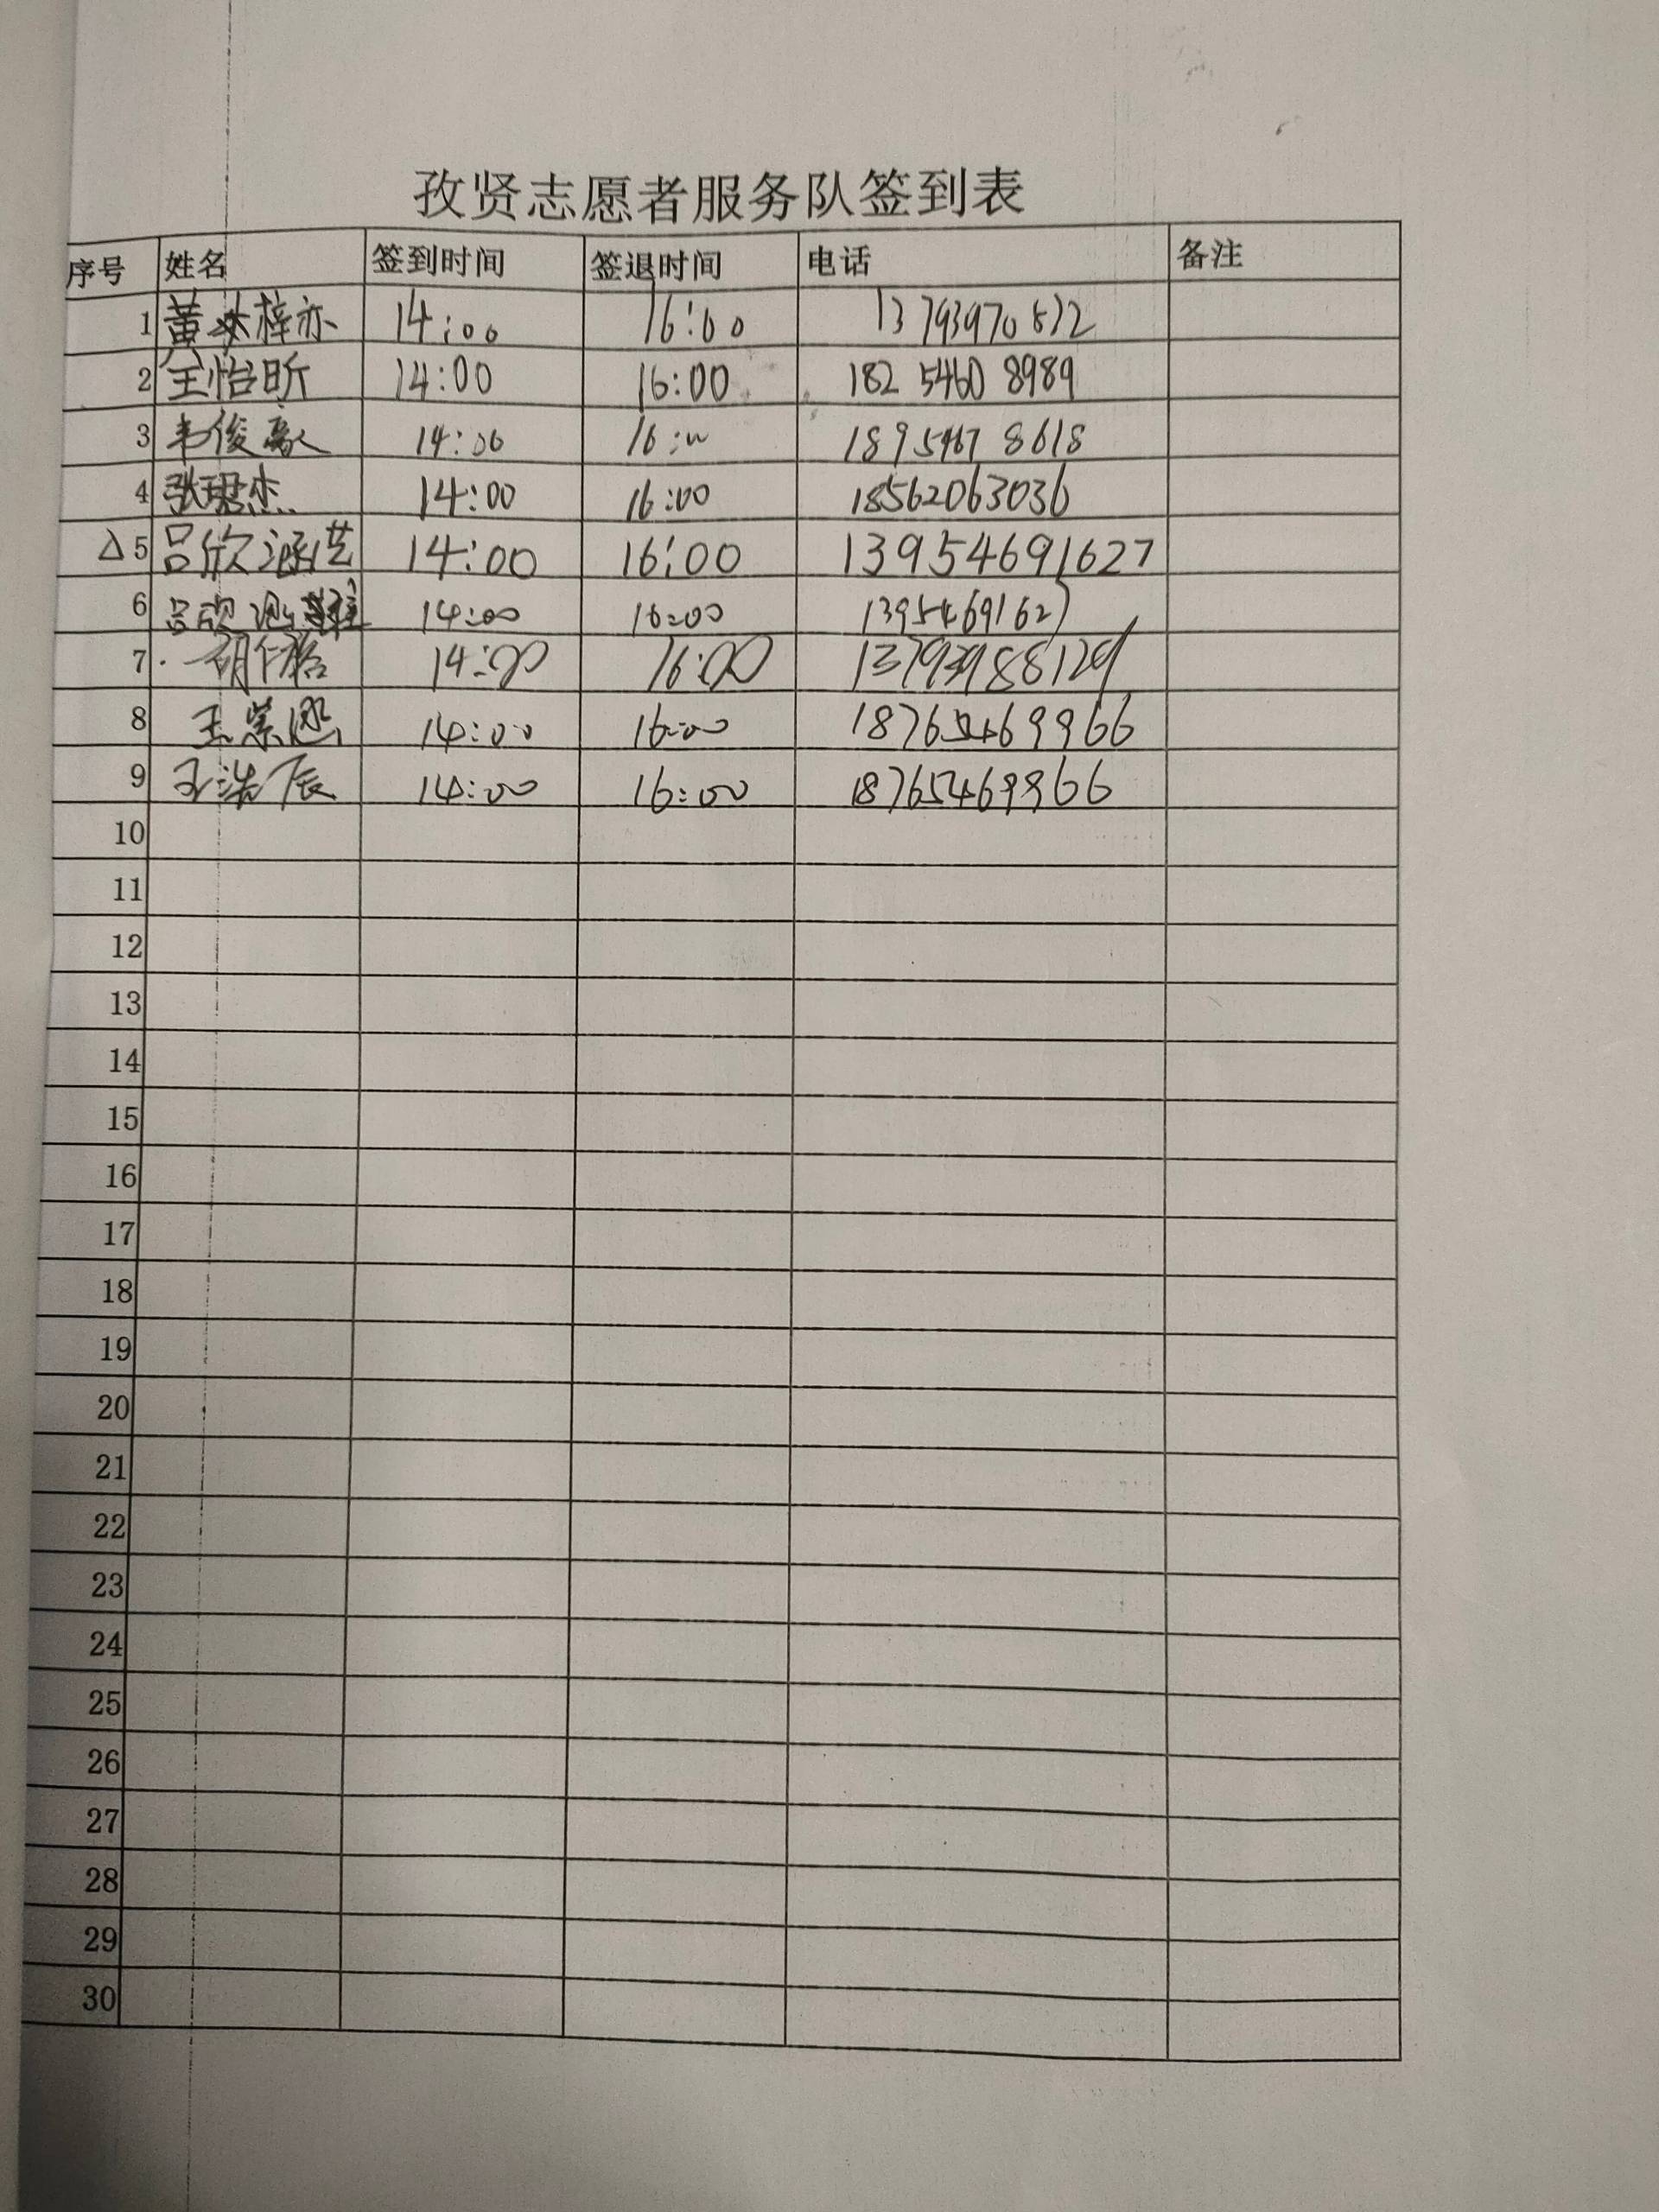 孜贤志愿者服务队签到表
序号 姓名 签到时间 签退时间 电话 备注
1 黄梓亦 14:00 16:00 13793970872
2 王怡昕 14:00 16:00 182 5460 8989
3 韦俊豪 14:00 16:00 1895467 8618
4 张珺杰 14:00 16:00 18562063036
△5 吕欣涵艺 14:00 16:00 13954691627
6 吕欣 14:00 16:00 13954691627
7 胡 14:00 16:00 13793988129
8 王崇 14:00 16:00 18765469966
9 王浩辰 14:00 16:00 18765469966
10
11
12
13
14
15
16
17
18
19
20
21
22
23
24
25
26
27
28
29
30